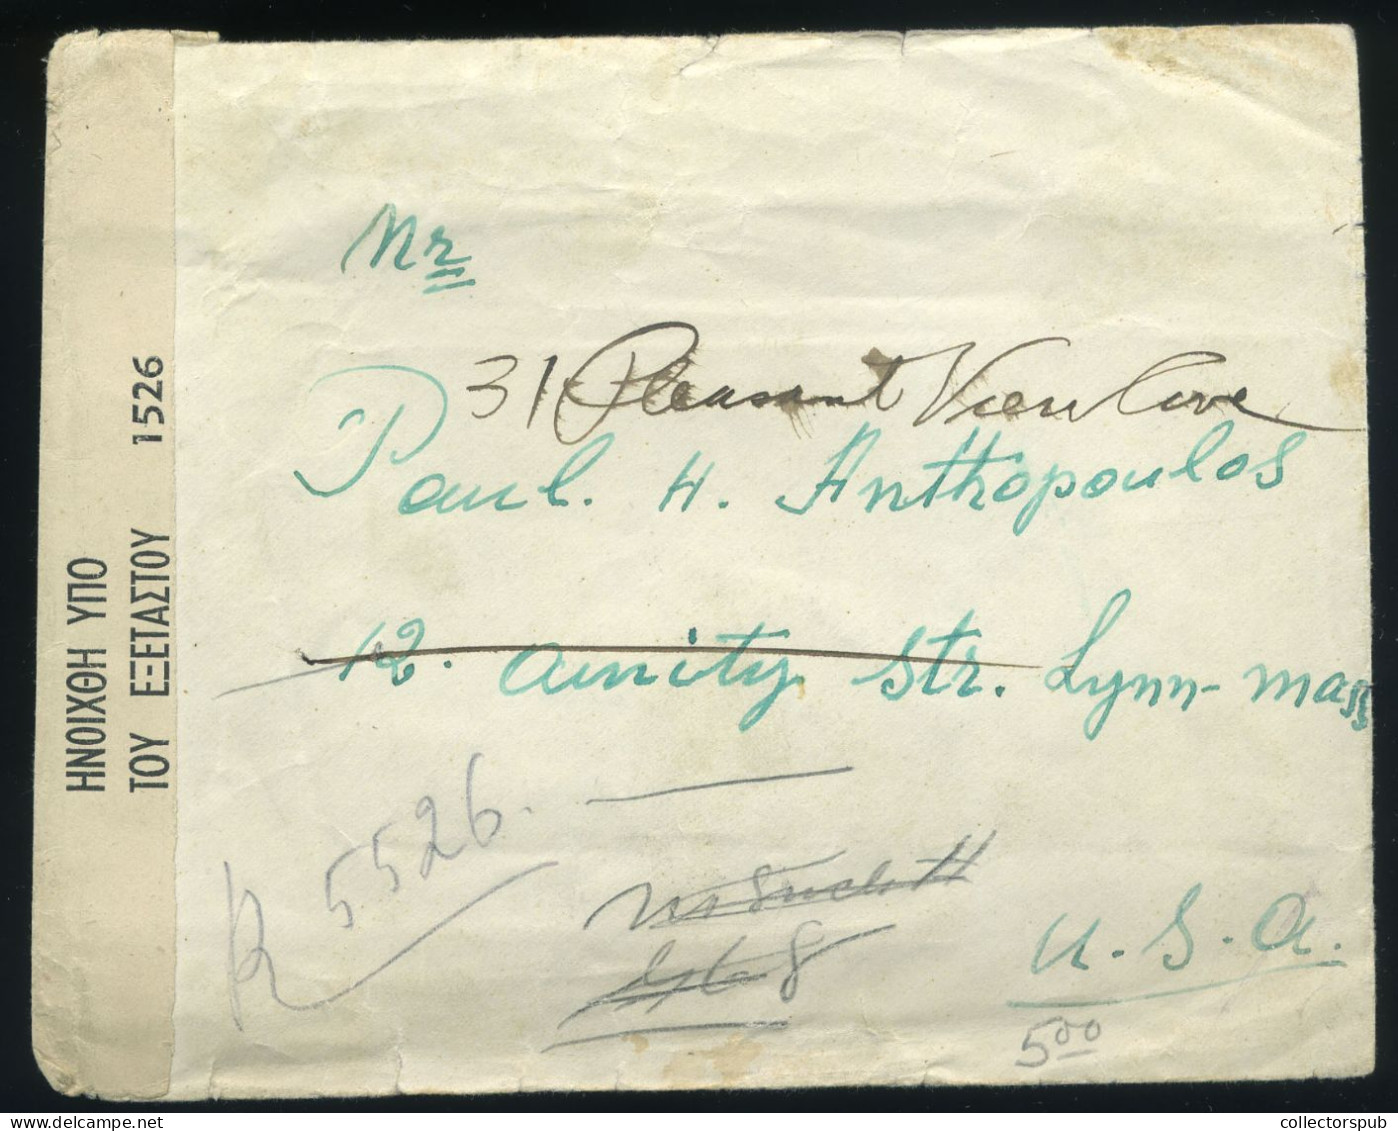 ΗΝΟΙΧΘΗ ΥΠΟ
ΤΟΥ ΕΞΕΤΑΣΤΟΥ 1526
Mr
31 Pleasant View Cove
Paul. H. Anthopoulos
12. Amity Str. Lynn-Mass
R 5526.
U.S.A.
5⁰⁰
collectorspub